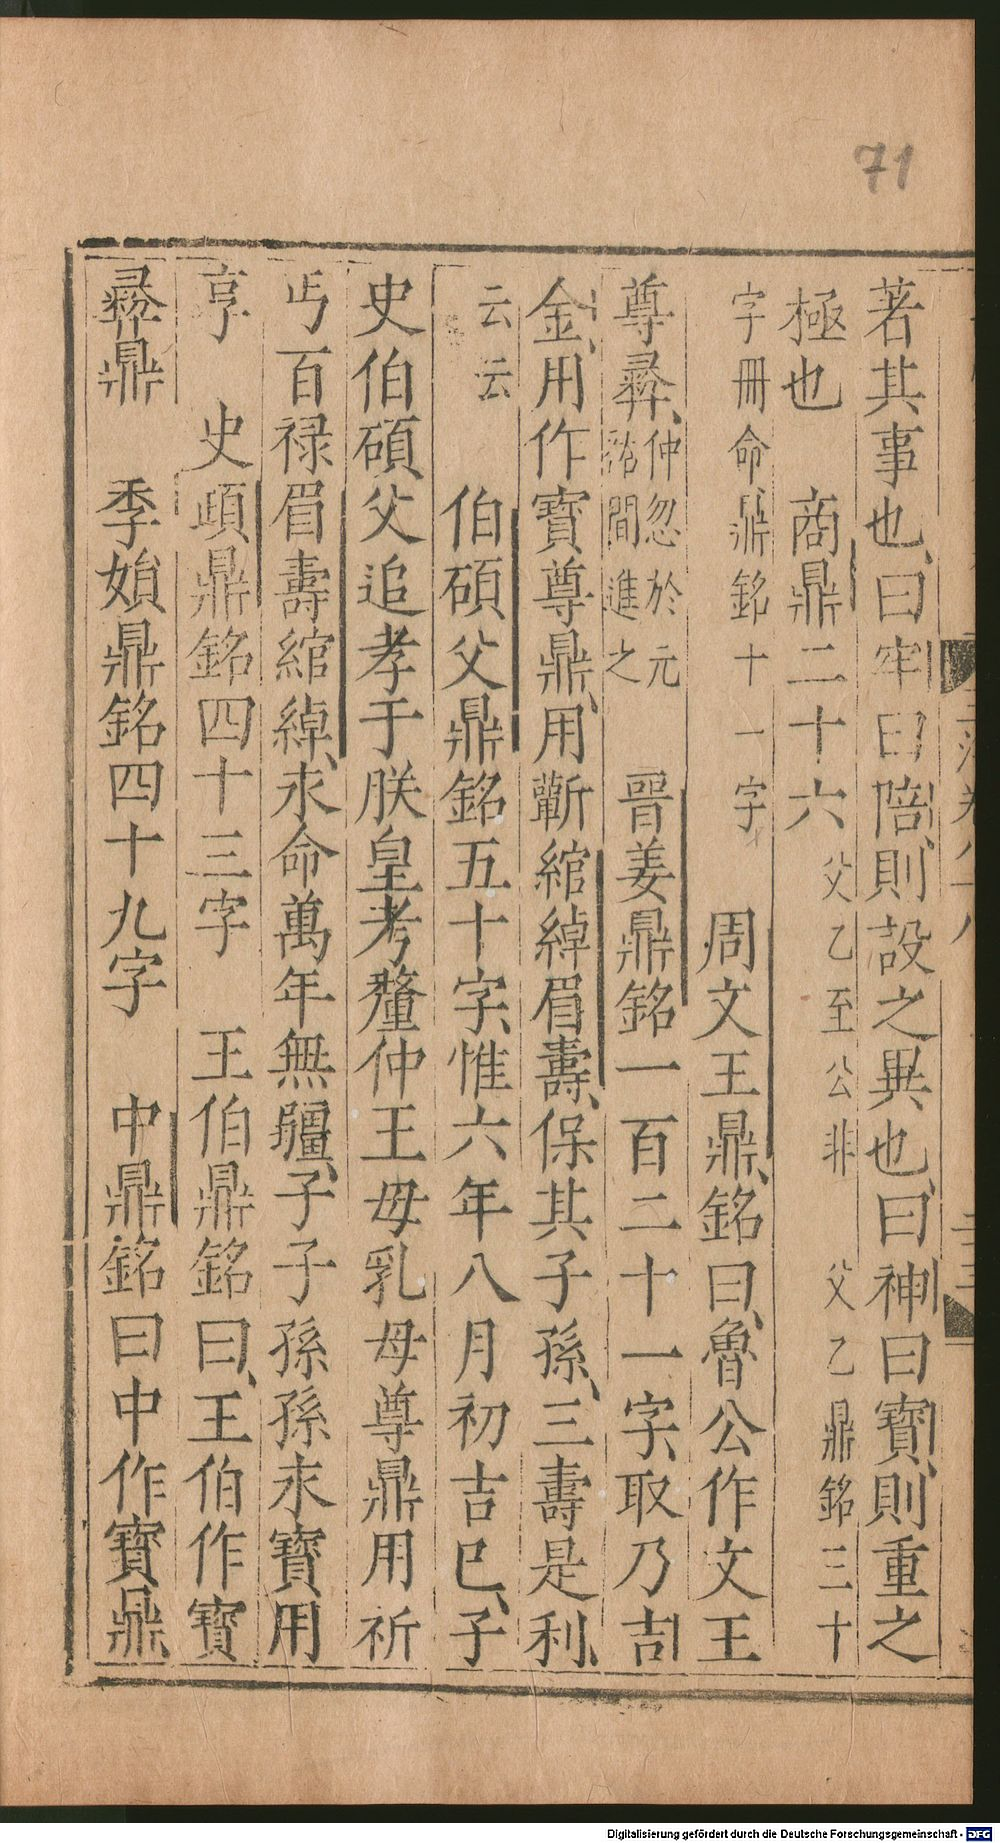 71
著其事也、曰牢曰陪、則設之異也、曰神曰寶、則重之
極也　商鼎二十六父乙至公非　父乙鼎銘三十
字冊命鼎銘十一字　周文王鼎、銘曰、魯公作文王
尊彝、仲忽於元祐間進之　晉姜鼎銘一百二十一字、取乃吉
金、用作寶尊鼎、用蘄綰綽眉壽、保其子孫、三壽是利、
云云　伯碩父鼎銘五十字、惟六年八月初吉巳、子
史伯碩父追孝于朕皇考釐仲王母乳母尊鼎用祈
丐百禄眉壽綰綽、永命萬年無疆、子子孫孫永寶用
享　史頙鼎銘四十三字　王伯鼎銘曰、王伯作寶
彝鼎　季娟鼎銘四十九字　中鼎銘曰中作寶鼎
Digitalisierung gefördert durch die Deutsche Forschungsgemeinschaft - DFG